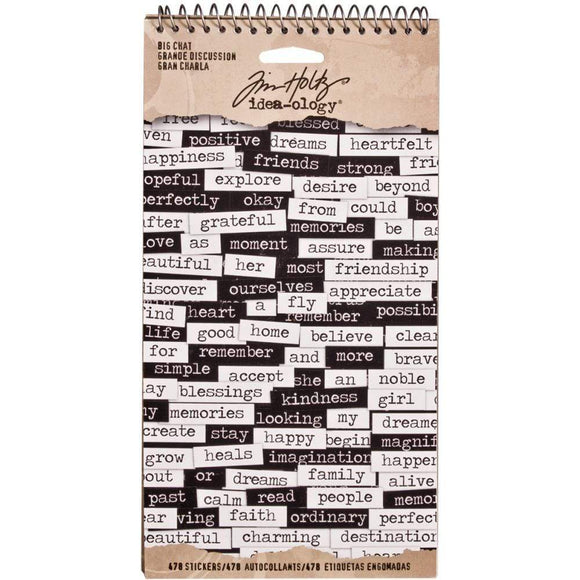 BIG CHAT
GRANDE DISCUSSION
GRAN CHARLA
Tim Holtz
idea-ology®
free for blessed
ven positive dreams heartfelt
happiness friends strong frie
opeful explore desire beyond
perfectly okay from could boy
after grateful memories be as
love as moment assure making
eautiful her most friendship
discover ourselves appreciate
find heart a fly remember possibi
life good home believe clear
for remember and more brave
simple accept she an noble
ay blessings kindness girl
y memories looking my dreame
create stay happy begin magnif
grow heals imagination happen
out or dreams family alive
past calm read people memor
ear ving faith ordinary perfect
eautiful charming destination
478 STICKERS/478 AUTOCOLLANTS/478 ETIQUETAS ENGOMADAS